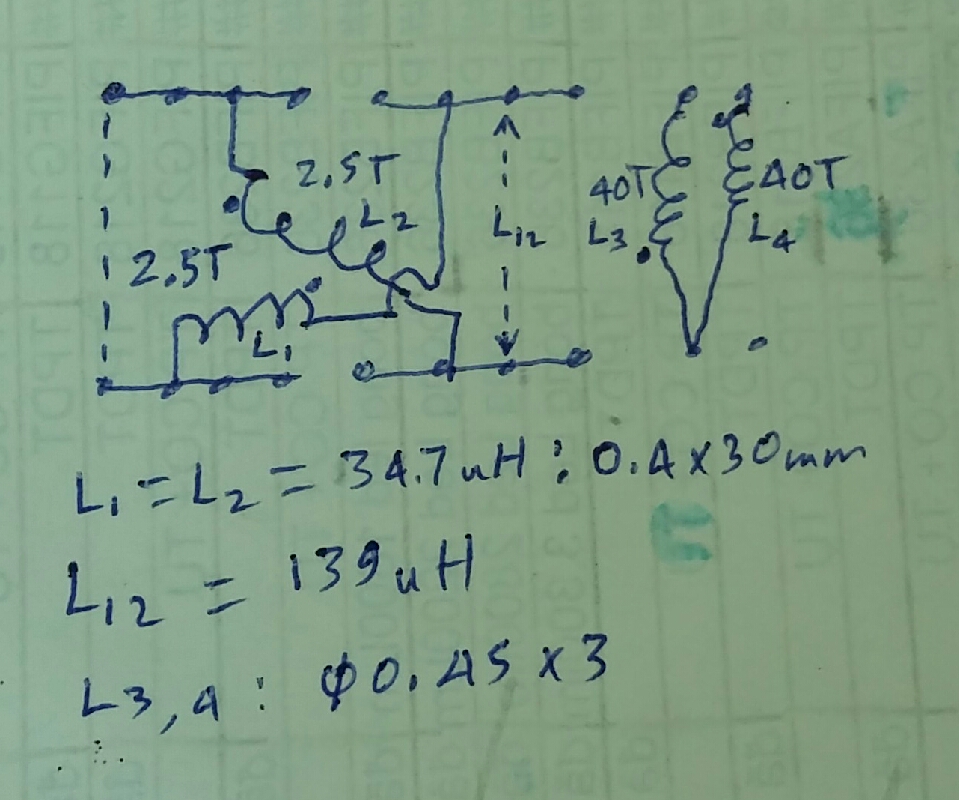 2.5T
L2
2.5T
L1
L12
40T
L3
40T
L4
L1 = L2 = 34.7uH : 0.4x30mm
L12 = 139uH
L3,4 : φ0.45 x 3